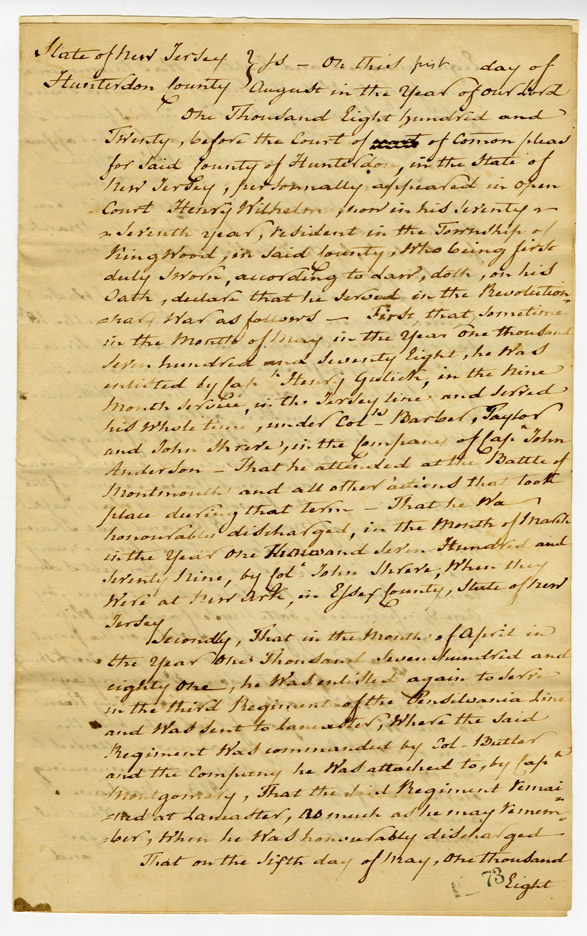 State of New Jersey } ss – On this first day of
Hunterdon County } August in the Year of Our Lord
One Thousand Eight hundred and
Twenty, before the Court of of Comon pleas
for said County of Hunterdon, in the State of
New Jersey, personnally appeared in open
Court Henry Wilhelm, now in his seventy =
= seventh year, resident in the Township of
KingWood, in said County, Who being first
duly Sworn, according to Law, doth, on his
Oath, declare that he served in the Revolution=
=nary War as follows – First that, sometime
in the Month of May in the Year One thousand
Seven hundred and Seventy Eight, he Was
enlisted by Capt Henry Gulick, in the Nine
Month Service, in the Jersey line and served
his Whole time, under Cols Barber, Taylor
and John Shreve, in the Company of Capn John
Anderson – That he attended at the Battle of
Montmouth and all other actions that took
place during that term – That he Wa
honourably discharged, in the Month of March
in the Year One thousand Seven Hundred and
Seventy Nine, by Col John Shreve, When they
Were at New Ark, in Essex County, State of New
Jersey
Secondly, That in the Month of April in
the Year One Thousand Seven hundred and
eighty One, he Was enlisted again to serve
in the third Regiment of the Pensilvania Line
and Was sent to Lancaster, Where the said
Regiment Was commanded by Col. Butler
and the Company he Was attached to, by Capt
Montgomery, That the said Regiment remai=
=ned at Lancaster, as much as he may remem=
=ber, When he Was honourably discharged
That on the fifth day of May, One thousand
73 Eight